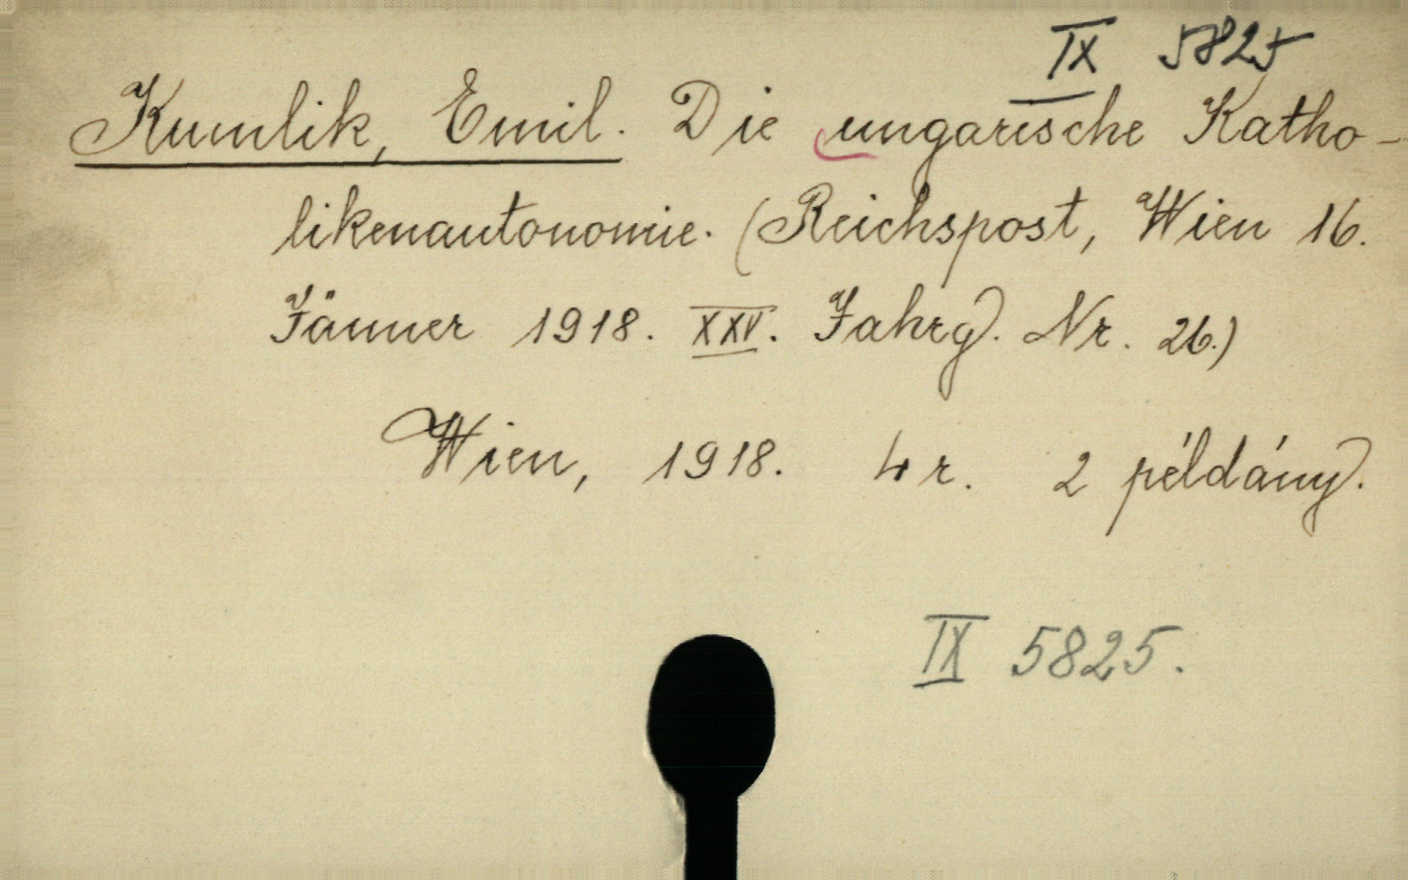 IX 5825
Kumlik, Emil. Die ungarische Katho-
likenautonomie. (Reichspost, Wien 16.
Jänner 1918. XXV. Jahrg. Nr. 26.)
Wien, 1918. 4r. 2 példány.
IX 5825.